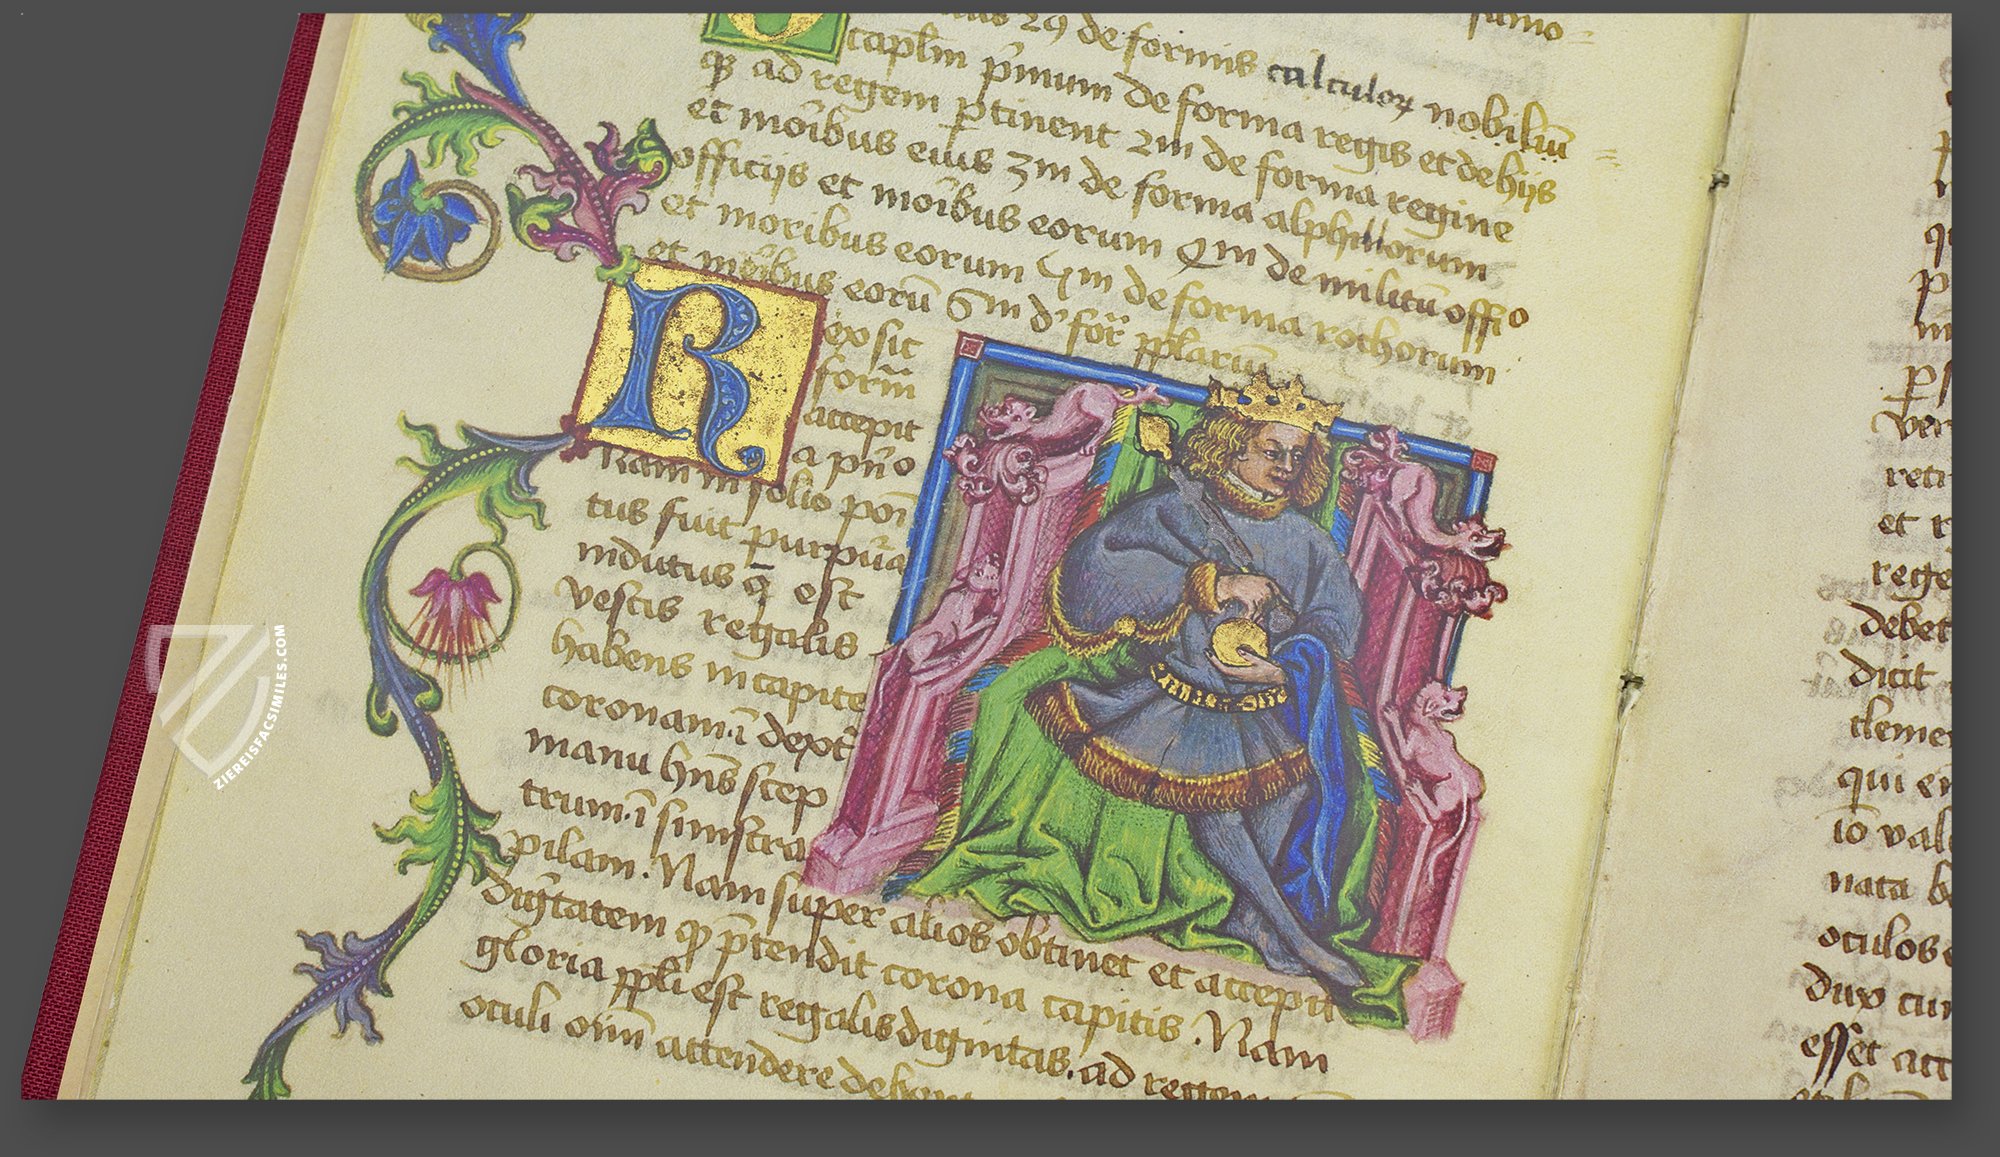 29 de formis calculoꝝ nobiliū
sumo=
caplm p̄mum de forma regis et de hijs
qꝫ ad regem ꝑtinent 2m de forma regine
et mōibus eius 3m de forma alphillorum
officijs et mōibus eorum 4m de militū offio
et moribus eorum 5m de forma rochorum
et mōibus eorū 6m d' for̄ pp̄lariū
Rex sit
form̄
accepit
a pn̄o
Nam in solio poi
tus fuit purpūa
indutus q̄ est
vestis regalis
habens in capite
coronam ī dext
manu hn̄s scep
trum ī sinistra
pilam. Nam super alios obtinet et accepit
dig̅tatem qꝫ p̄tendit corona capitis. Nam
gloria pp̄li est regalis dignitas. ad rectorem
oculi oīm attendere debent
ver
reti
et r
rege
debet
dicit
cleme
qui en
io val
nata b
oculos
dux cui
esset act
ZIEREISFACSIMILES.COM